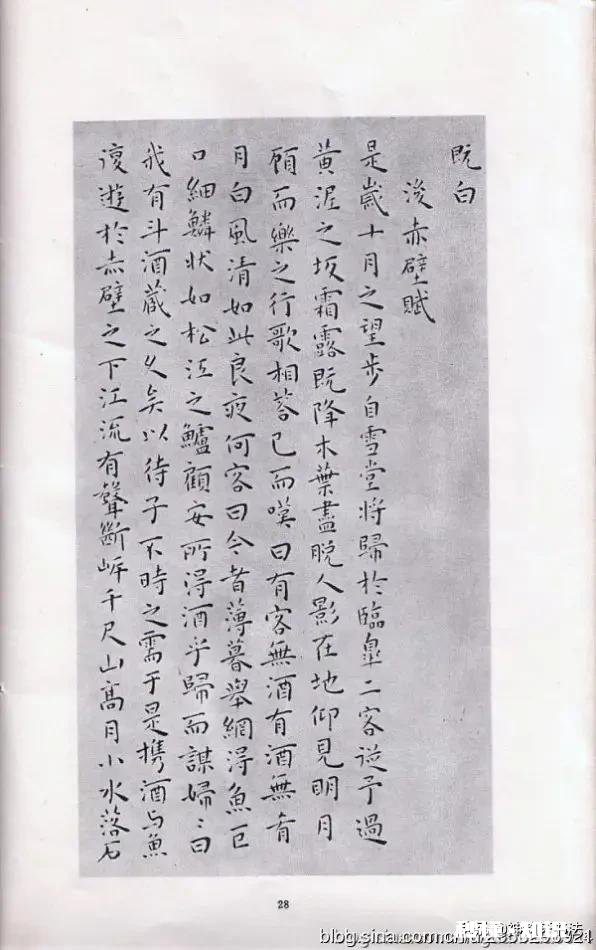 既白
後赤壁賦
是歲十月之望步自雪堂將歸於臨皐二客從予過
黃泥之坂霜露既降木葉盡脫人影在地仰見明月
顧而樂之行歌相荅已而嘆曰有客無酒有酒無肴
月白風清如此良夜何客曰今者薄暮舉網得魚巨
口細鱗狀如松江之鱸顧安所得酒乎歸而謀婦〻曰
我有斗酒藏之久矣以待子不時之需于是携酒与魚
復遊於赤壁之下江流有聲斷岸千尺山高月小水落石
28
blog.sina.com.cn